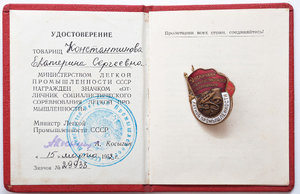 УДОСТОВЕРЕНИЕ
ТОВАРИЩ Константинова
Екатерина Сергеевна
МИНИСТЕРСТВОМ ЛЕГКОЙ
ПРОМЫШЛЕННОСТИ СССР
НАГРАЖДЕН ЗНАЧКОМ «ОТ-
ЛИЧНИК СОЦИАЛИСТИЧЕСКОГО
СОРЕВНОВАНИЯ ЛЕГКОЙ ПРО-
МЫШЛЕННОСТИ».
Министр Легкой
Промышленности СССР
А. Косыгин
„15 марта
Значок № 29938
Пролетарии всех стран, соединяйтесь!